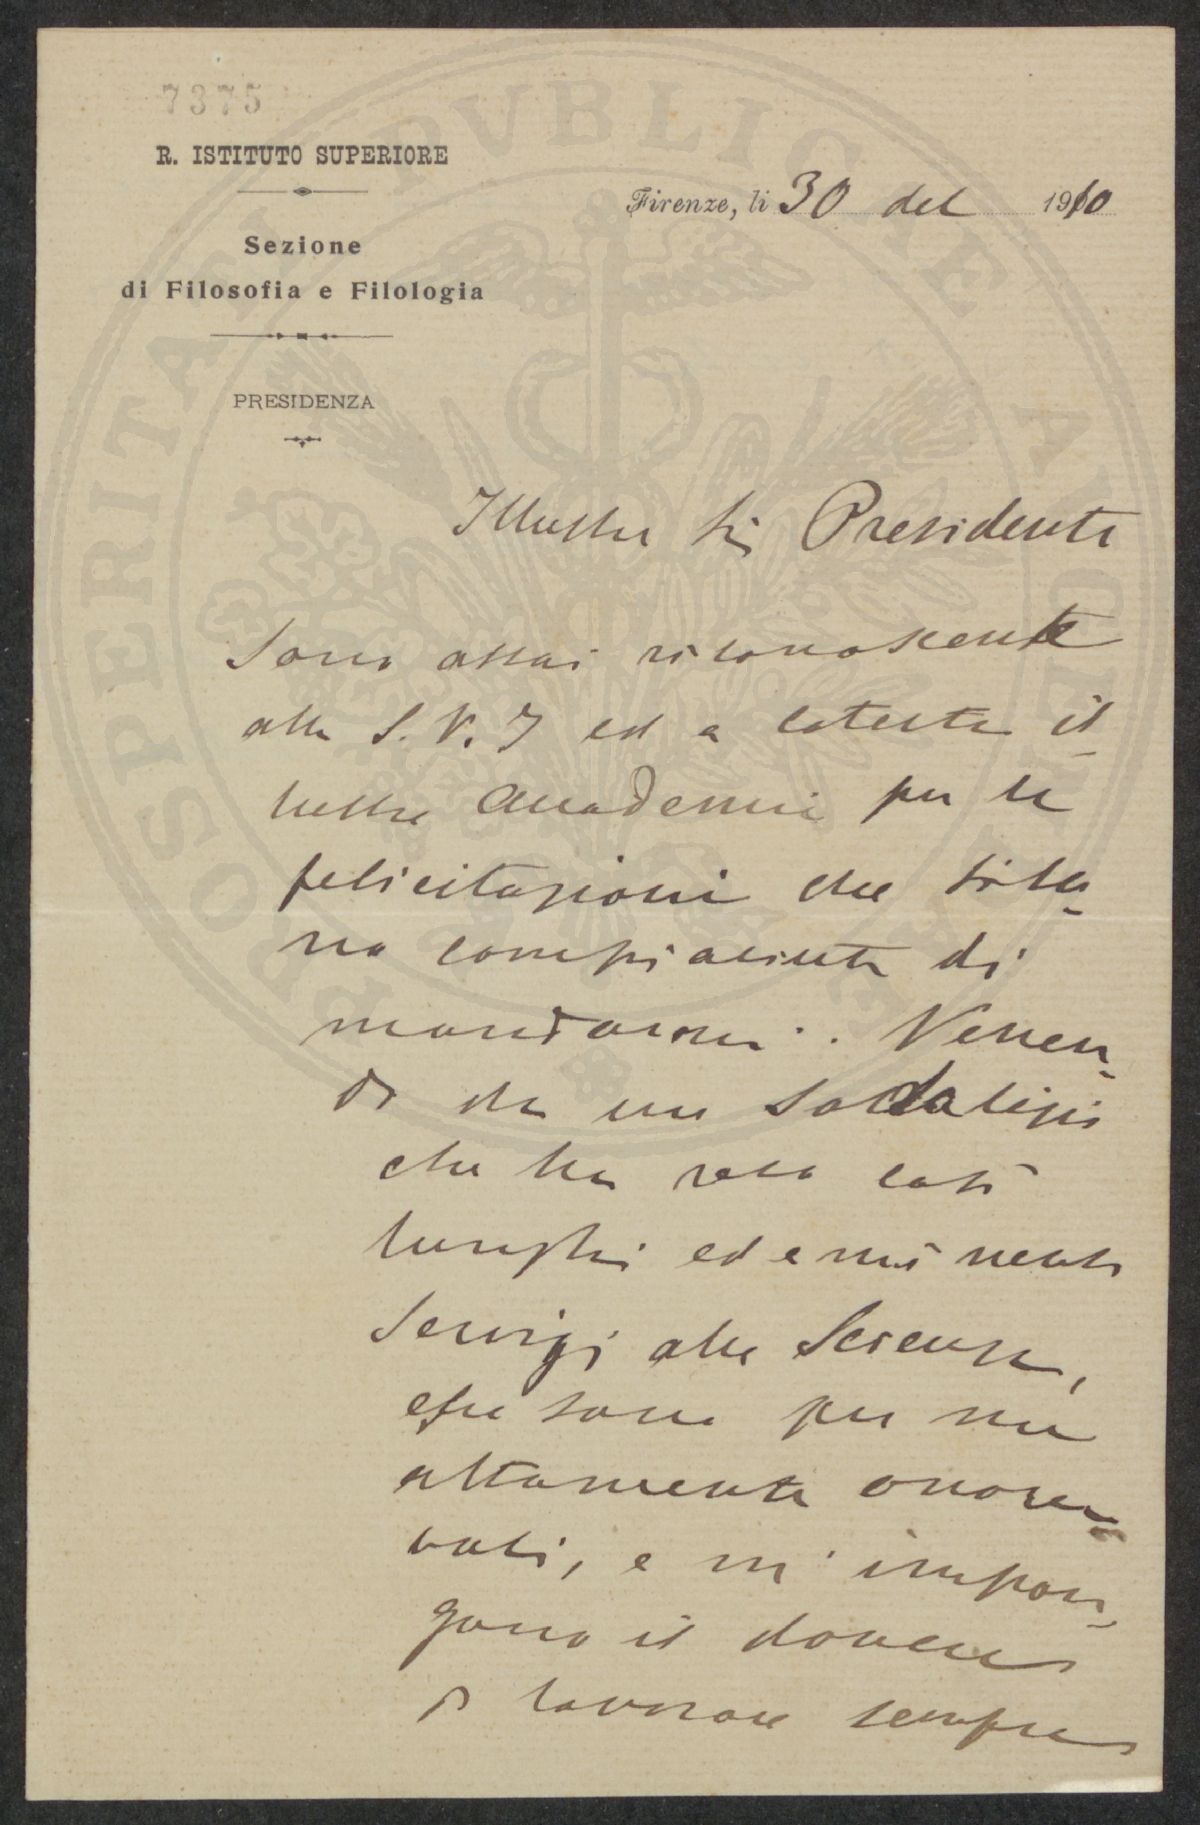 7375
R. ISTITUTO SUPERIORE
Sezione
di Filosofia e Filologia
PRESIDENZA
Firenze, li 30 del 1910
Illustre Sig Presidente
Sono assai riconoscente
alla S. V. I ed a cotesta il-
lustre Accademia per le
felicitazioni che si so-
no compiaciute di
mandarmi. Venen-
do da un Sodalizio
che ha reso così
lunghi ed eminenti
Servigi alla Scienza,
esse sono per me
altamente onore-
voli, e m'impon-
gono il dovere
di lavorare sempre
PROSPERITATI PVBLICAE AVGENDAE